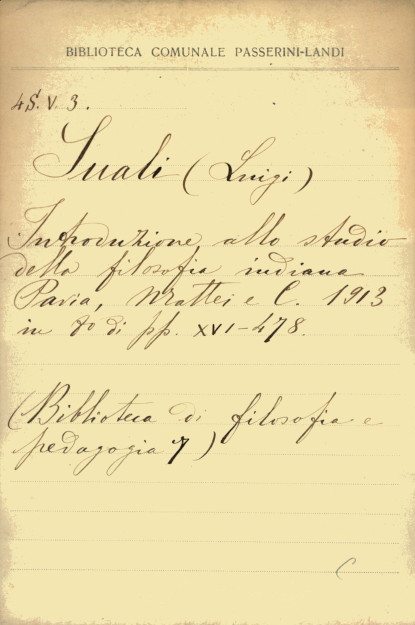 BIBLIOTECA COMUNALE PASSERINI-LANDI
4S. V. 3.
Suali (Luigi)
Introduzione allo studio
della filosofia indiana
Pavia, Mattei e C. 1913
in 8o di pp. XVI-478.
(Biblioteca di filosofia e
pedagogia 7)
C